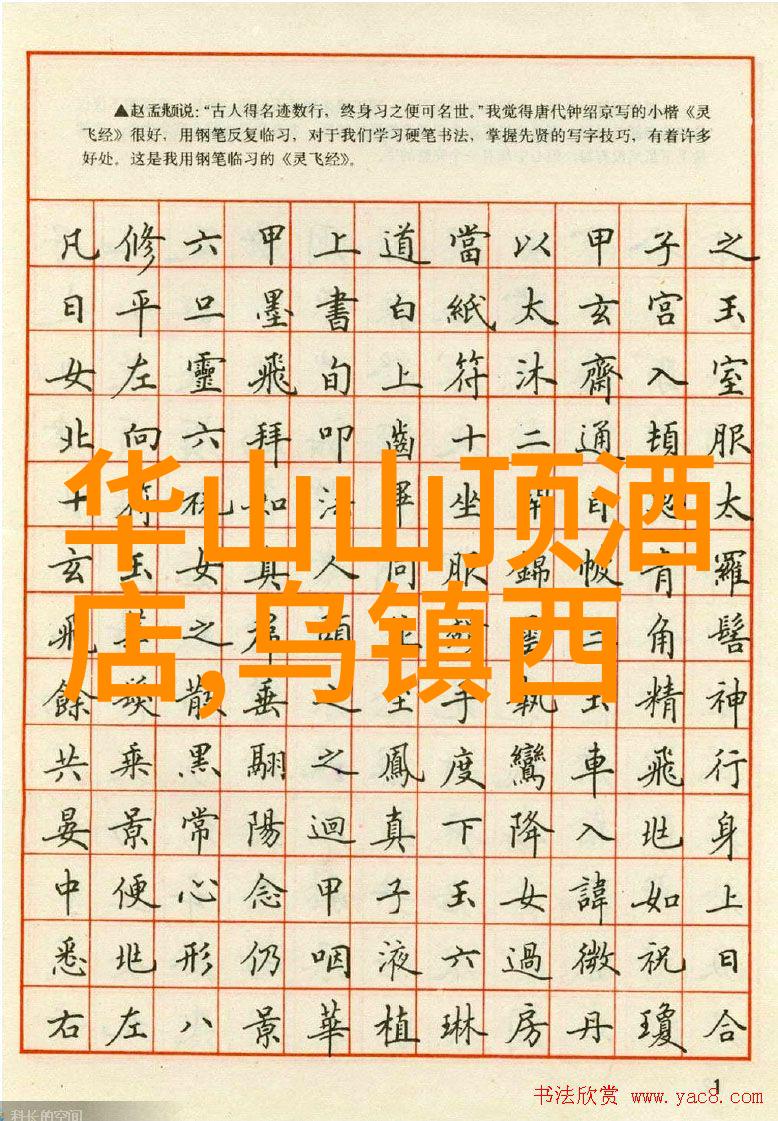 ▲赵孟頫说:“古人得名迹数行,终身习之便可名世。”我觉得唐代钟绍京写的小楷《灵
飞经》很好,用钢笔反复临习,对于我们学习硬笔书法,掌握先贤的写字技巧,有着许多
好处。这是我用钢笔临习的《灵飞经》。
凡修六甲上道當以甲子之
日平旦墨書白紙太玄宮玉
女左靈飛旬上符沐齋入室
北向六拜叩齒十二通頓服
十符祝如法畢坐目太
玄玉女真人同服錦帔青羅
飛之裙頭三角髻
餘散垂之至手執玉精神
共乘黑翮之鳳度鸞車飛行
晏景常陽迴真下降入兆身
中便心念甲子玉女諱如上
悉兆形仍咽液六過微祝曰
右左八景華植琳房丹瓊合
华山山顶酒
店,乌镇西
1
书法欣赏 www.yac8.com
科长的空间